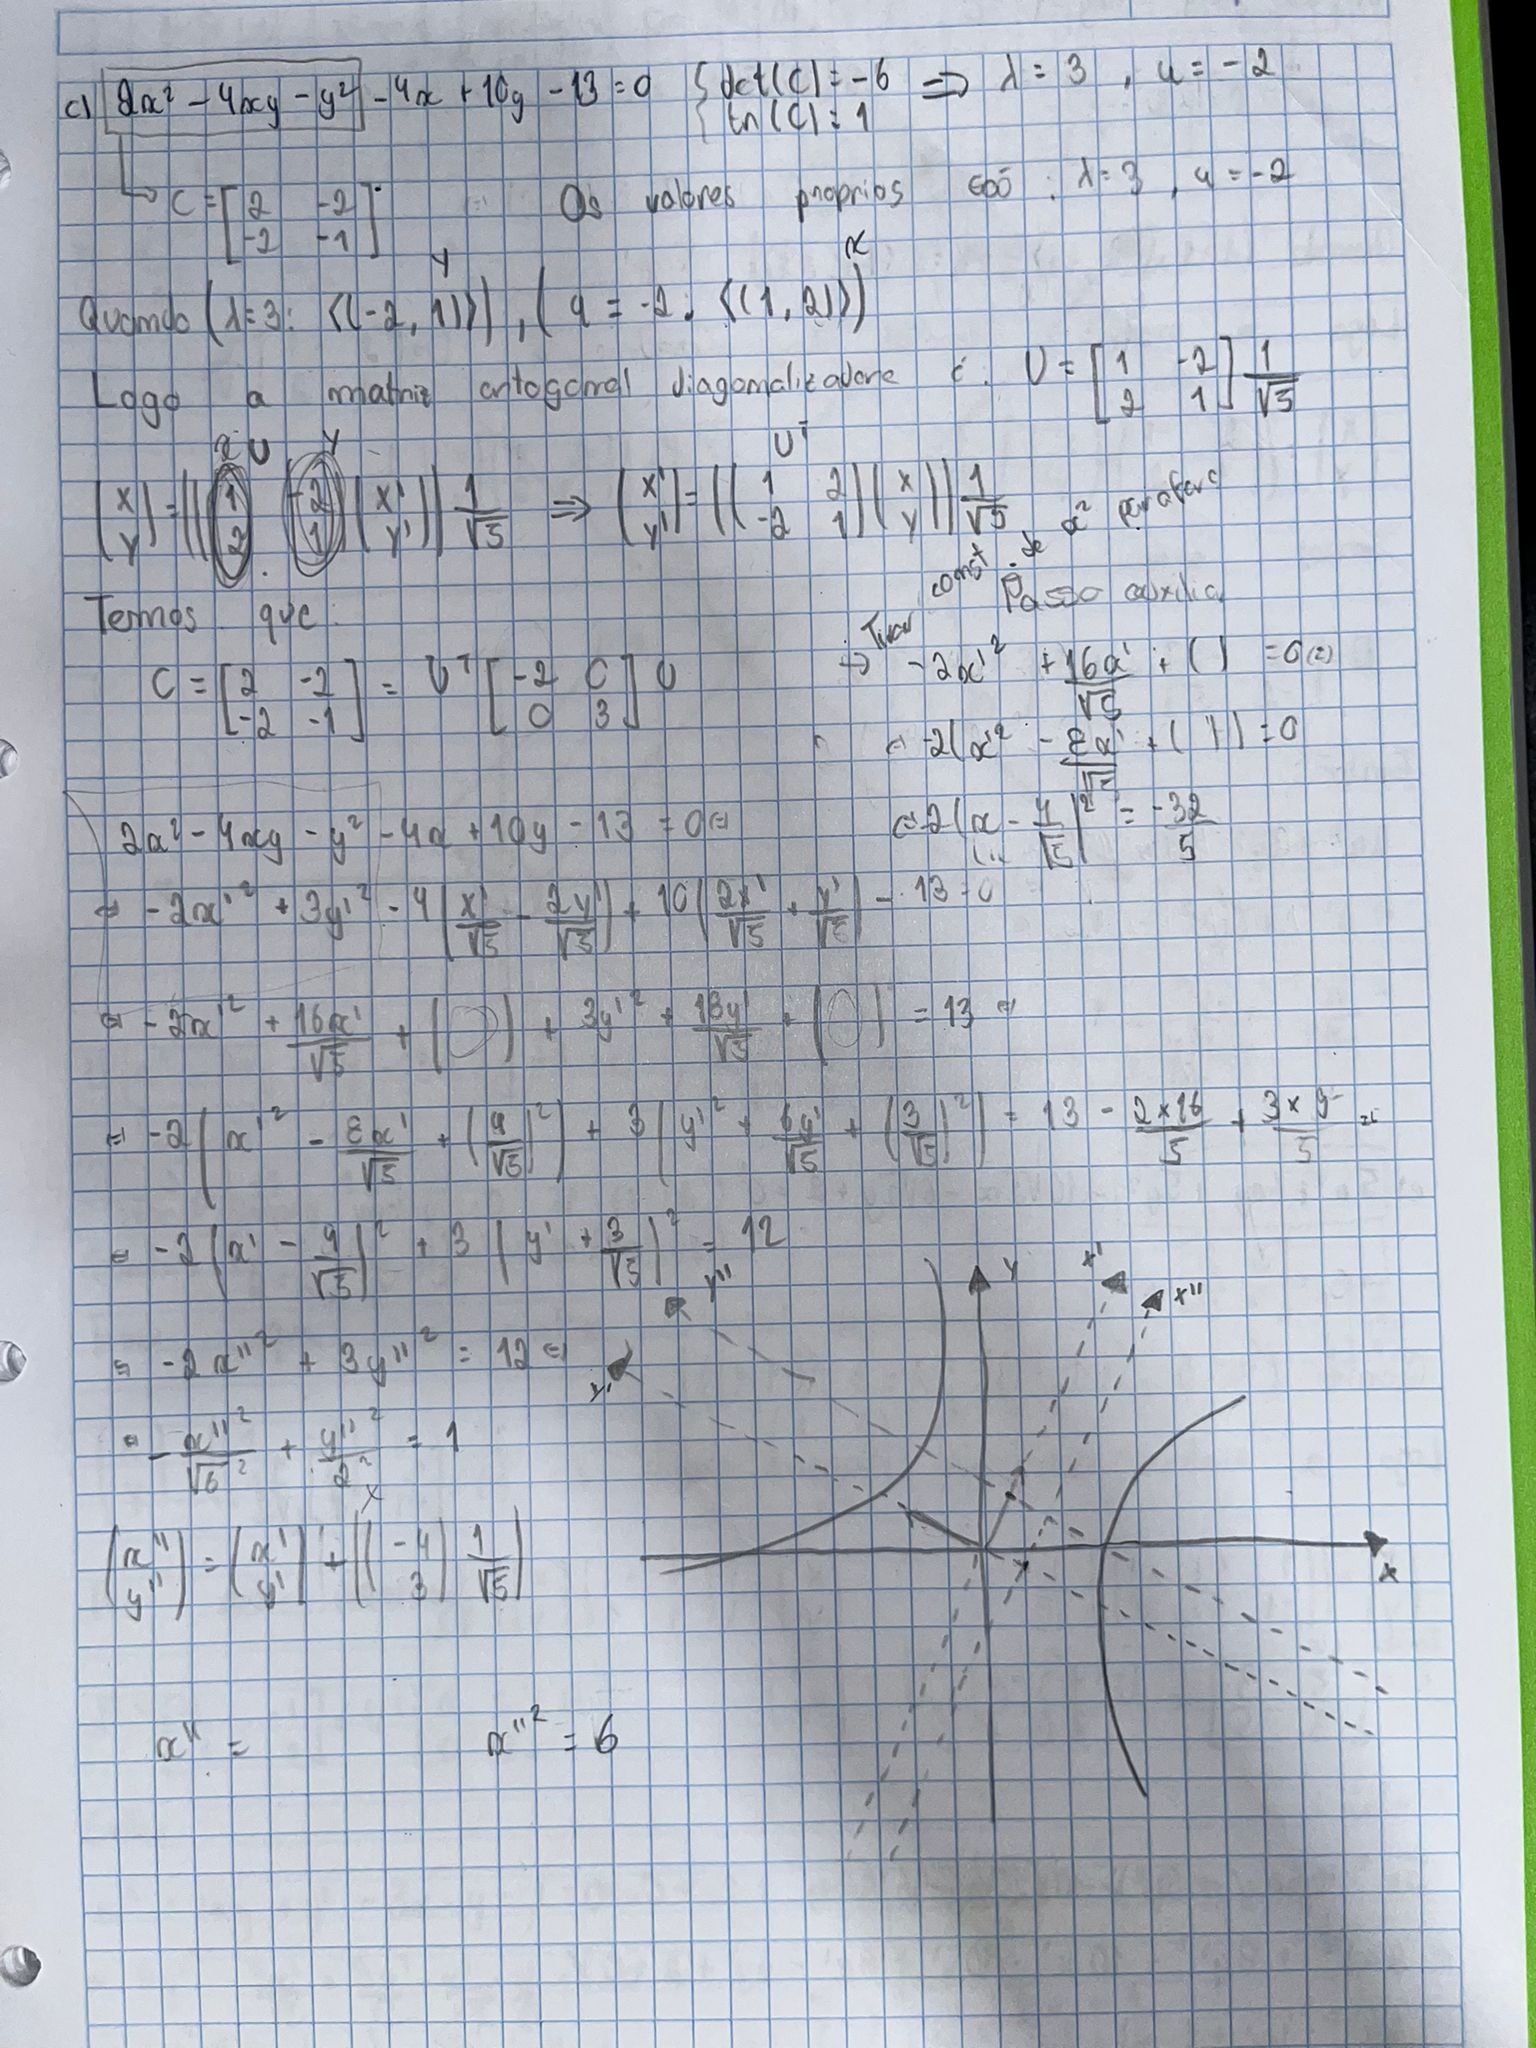 c) 2x² - 4xy - y² - 4x + 10y - 13 = 0 { det(C) = -6 ⇒ λ = 3 , u = -2
tn(C) = 1
↳ C = [2 -2
-2 -1] Os valores proprios são : λ = 3 , u = -2
y x
Quando (λ=3: ⟨(-2, 1)⟩), (u = -2: ⟨(1, 2)⟩)
Logo a matriz ortogonal diagonalizadora é: U = [1 -2
2 1] 1/√5
x U y U^T
(x
y) = ((1 -2
2 1)(x'
y')) 1/√5 ⇒ (x'
y') = ((1 2
-2 1)(x
y)) 1/√5
Temos que:
C = [2 -2
-2 -1] = U^T [-2 0
0 3] U
→ Tirar const. de x² para fora
Passo auxiliar
-2x'² + 16x'/√5 + ( ) = 0 (=)
⇔ -2(x'² - 8x'/√5 + ( )) = 0
⇔ -2(x - 4/√5)² = -32/5
2x² - 4xy - y² - 4x + 10y - 13 = 0 ⇔
⇔ -2x'² + 3y'² - 4(x'/√5 - 2y'/√5) + 10(2x'/√5 + y'/√5) - 13 = 0
⇔ -2x'² + 16x'/√5 + ( ) + 3y'² + 18y'/√5 + ( ) = 13 ⇔
⇔ -2(x'² - 8x'/√5 + (4/√5)²) + 3(y'² + 6y'/√5 + (3/√5)²) = 13 - 2×16/5 + 3×9/5 ⇔
⇔ -2(x' - 4/√5)² + 3(y' + 3/√5)² = 12
⇔ -2x''² + 3y''² = 12 ⇔
⇔ -x''²/√6² + y''²/2² = 1
(x''
y'') = (x'
y') + ((-4
3) 1/√5)
x'' =
x''² = 6
y''
y'
y
x'
x''
x